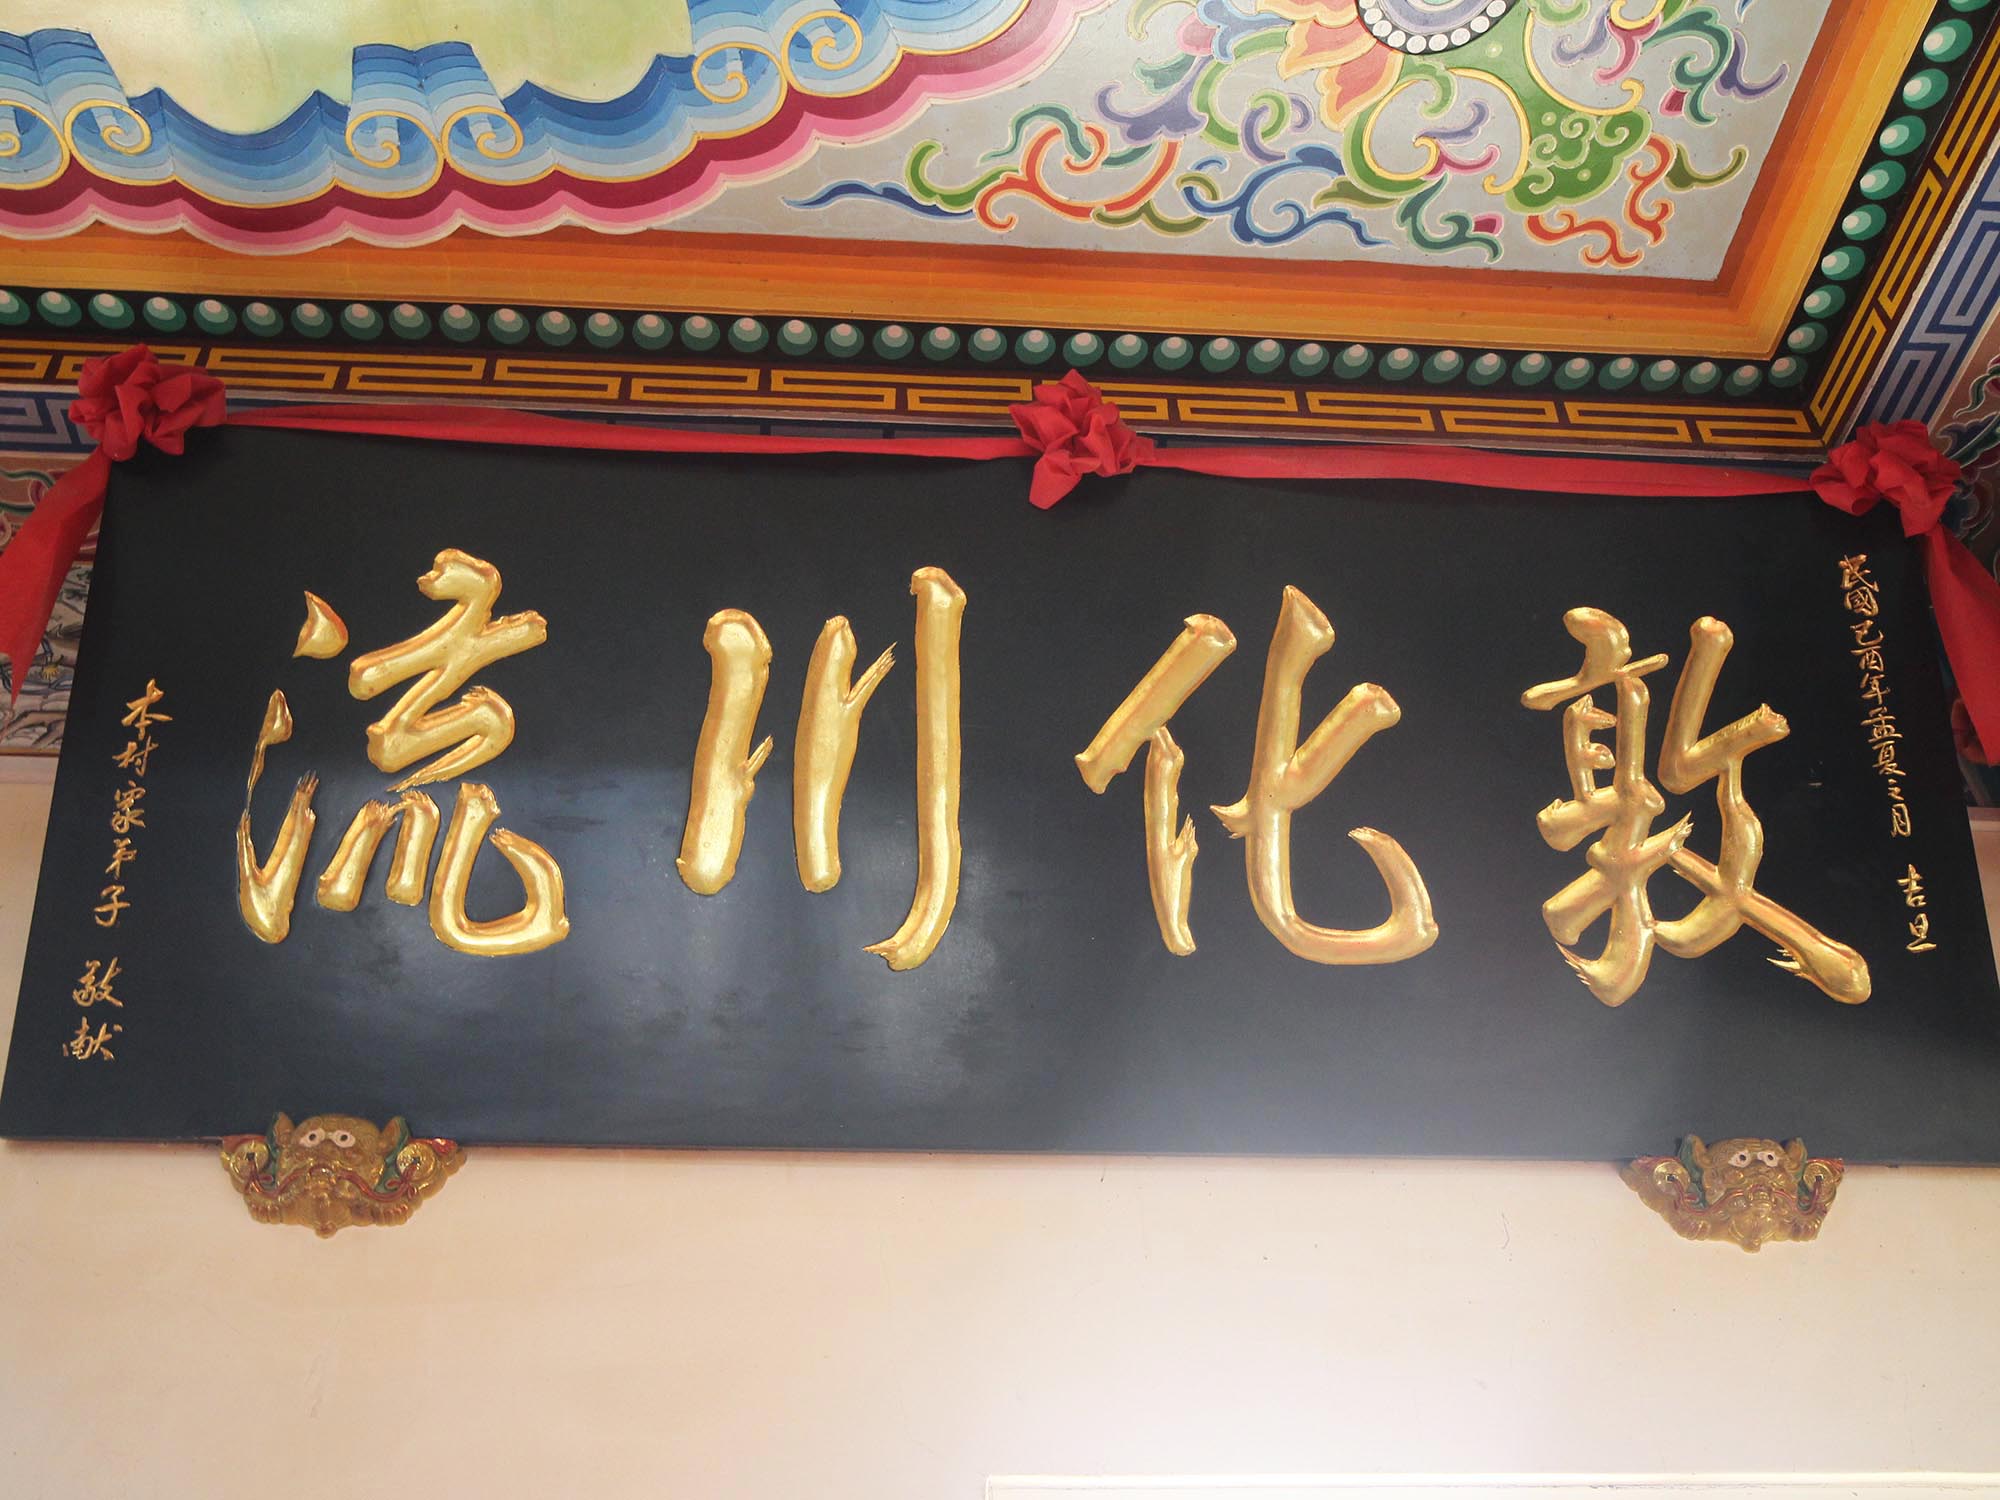 民國己酉年孟夏之月 吉旦
敦化川流
本村眾弟子 敬献